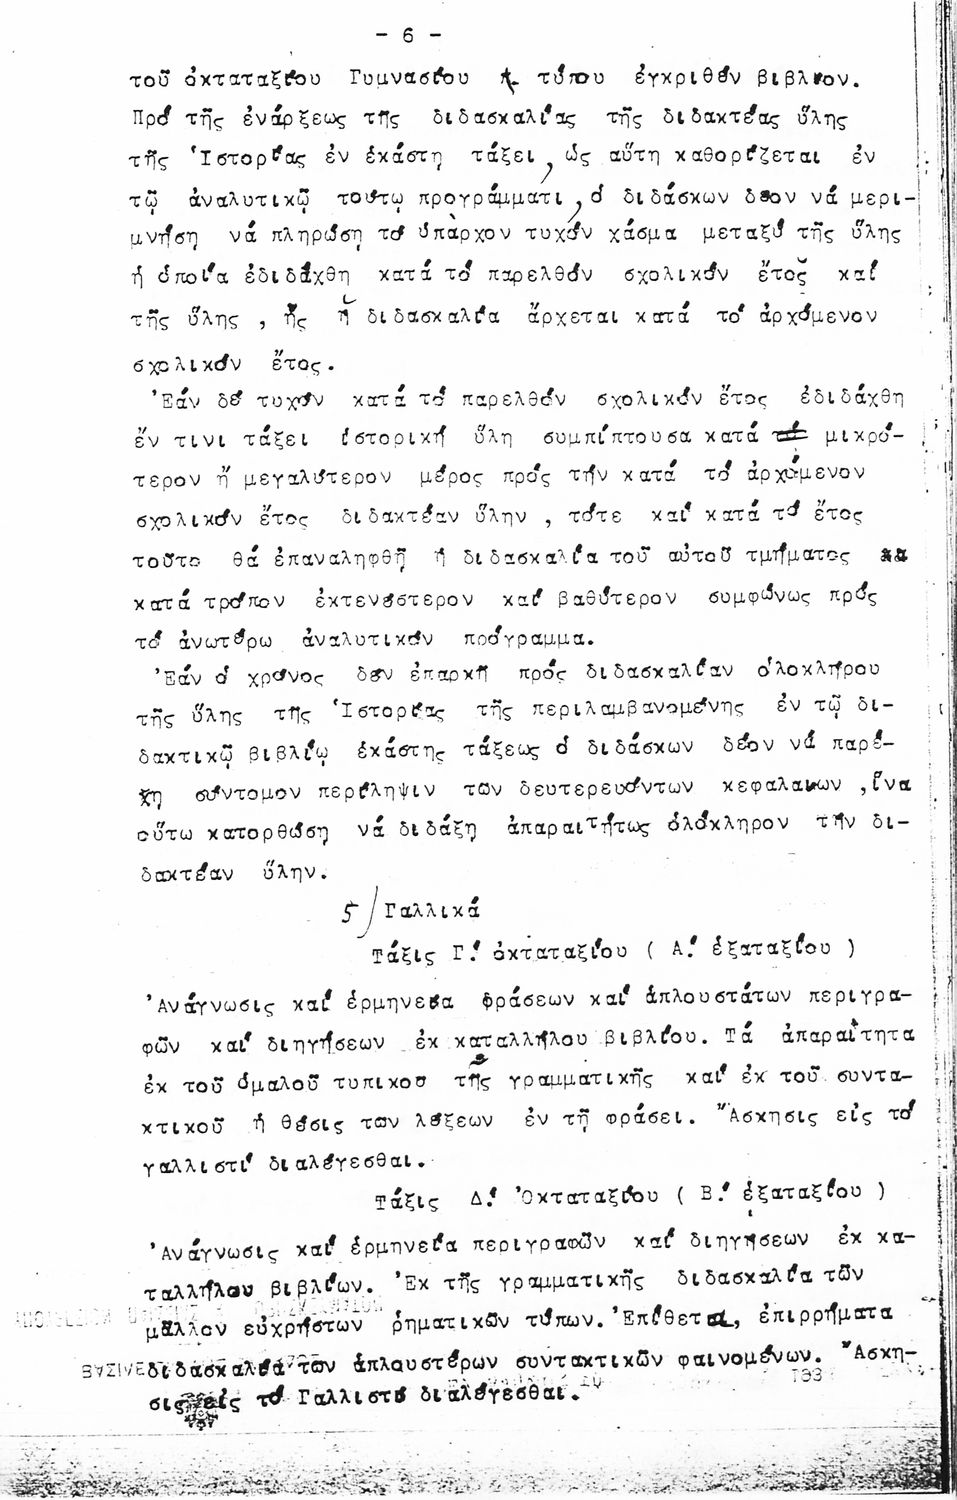 - 6 -
τοῦ ὀκταταξίου Γυμνασίου ἤ τύπου ἐγκριθέν βιβλίον.
Πρό τῆς ἐνάρξεως τῆς διδασκαλίας τῆς διδακτέας ὕλης
τῆς Ἱστορίας ἐν ἑκάστῃ τάξει, ὡς αὕτη καθορίζεται ἐν
τῷ ἀναλυτικῷ τούτῳ προγράμματι, ὁ διδάσκων δέον νά μερι-
μνήσῃ νά πληρώσῃ τό ὑπάρχον τυχόν χάσμα μεταξύ τῆς ὕλης
ἡ ὁποία ἐδιδάχθη κατά τό παρελθόν σχολικόν ἔτος καί
τῆς ὕλης , ἧς ἡ διδασκαλία ἄρχεται κατά τό ἀρχόμενον
σχολικόν ἔτος.
Ἐάν δέ τυχόν κατά τό παρελθόν σχολικόν ἔτος ἐδιδάχθη
ἔν τινι τάξει ἱστορική ὕλη συμπίπτουσα κατά τό μικρό-
τερον ἤ μεγαλύτερον μέρος πρός τήν κατά τό ἀρχόμενον
σχολικόν ἔτος διδακτέαν ὕλην , τότε καί κατά τό ἔτος
τοῦτο θά ἐπαναληφθῇ ἡ διδασκαλία τοῦ αὐτοῦ τμήματος
κατά τρόπον ἐκτενέστερον καί βαθύτερον συμφώνως πρός
τό ἀνωτέρω ἀναλυτικόν πρόγραμμα.
Ἐάν ὁ χρόνος δέν ἐπαρκῇ πρός διδασκαλίαν ὁλοκλήρου
τῆς ὕλης τῆς Ἱστορίας τῆς περιλαμβανομένης ἐν τῷ δι-
δακτικῷ βιβλίῳ ἑκάστης τάξεως ὁ διδάσκων δέον νά παρέ-
χῃ σύντομον περίληψιν τῶν δευτερευόντων κεφαλαίων ,ἵνα
οὕτω κατορθώσῃ νά διδάξῃ ἀπαραιτήτως ὁλόκληρον τήν δι-
δακτέαν ὕλην.
5/ Γαλλικά
Τάξις Γ.' ὀκταταξίου ( Α.' ἑξαταξίου )
Ἀνάγνωσις καί ἑρμηνεία φράσεων καί ἁπλουστάτων περιγρα-
φῶν καί διηγήσεων ἐκ καταλλήλου βιβλίου. Τά ἀπαραίτητα
ἐκ τοῦ ὁμαλοῦ τυπικοῦ τῆς γραμματικῆς καί ἐκ τοῦ συντα-
κτικοῦ ἡ θέσις τῶν λέξεων ἐν τῇ φράσει. Ἄσκησις εἰς τό
γαλλιστί διαλέγεσθαι.
Τάξις Δ.' Ὀκταταξίου ( Β.' ἑξαταξίου )
Ἀνάγνωσις καί ἑρμηνεία περιγραφῶν καί διηγήσεων ἐκ κα-
ταλλήλου βιβλίων. Ἐκ τῆς γραμματικῆς διδασκαλία τῶν
μᾶλλον εὐχρήστων ῥηματικῶν τύπων. Ἐπίθετα, ἐπιρρήματα
διδασκαλία τῶν ἁπλουστέρων συντακτικῶν φαινομένων. Ἄσκη-
σις εἰς τό Γαλλιστί διαλέγεσθαι.